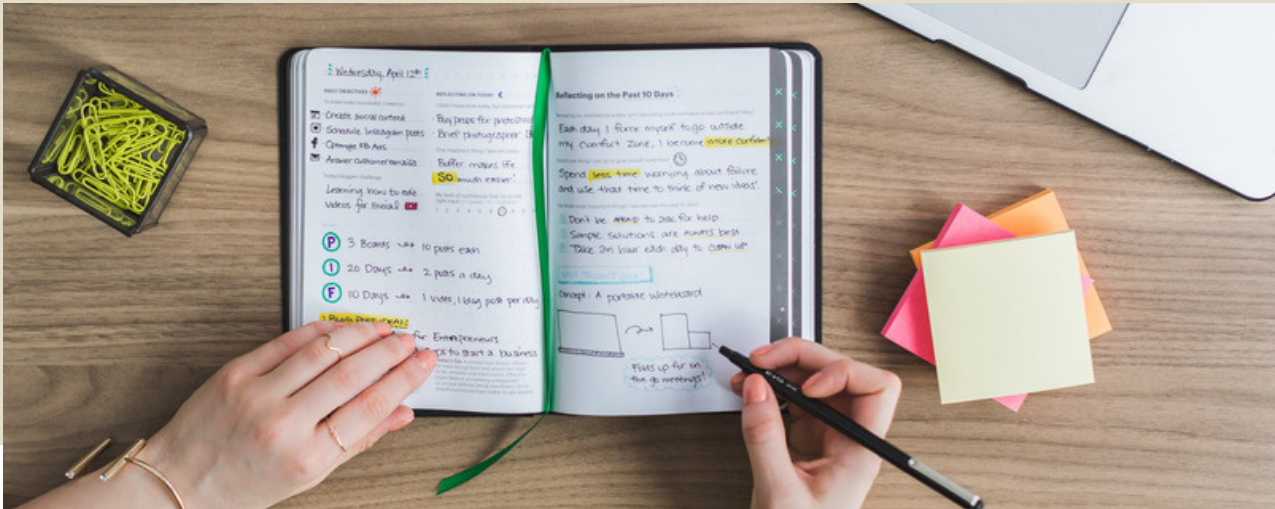 Wednesday, April 12th
DAILY OBJECTIVES
Create social content
Schedule Instagram posts
Optimize FB Ads
Answer customer emails
Today's biggest challenge
Learning how to edit
videos for social
REFLECTING ON TODAY
Buy props for photoshoot
Brief photographer
Buffer makes life
SO much easier!
P 3 Boards 10 posts each
I 20 Days 2 posts a day
F 10 Days 1 video, 1 blog post per day
BLOG POST IDEAS
for Entrepreneurs
to start a business
Reflecting on the Past 10 Days
Each day I force myself to go outside
my comfort zone, I become more confident
Spend less time worrying about failure
and use that time to think of new ideas!
Don't be AFRAID to ask for help
Simple solutions are ALWAYS best
Take an hour each day to CLEAN UP
NEW PRODUCT IDEA
Concept: A portable whiteboard
Folds up for on
the go meetings!